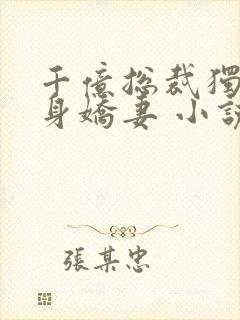 千億總裁獨
身嬌妻 小說
張某忠